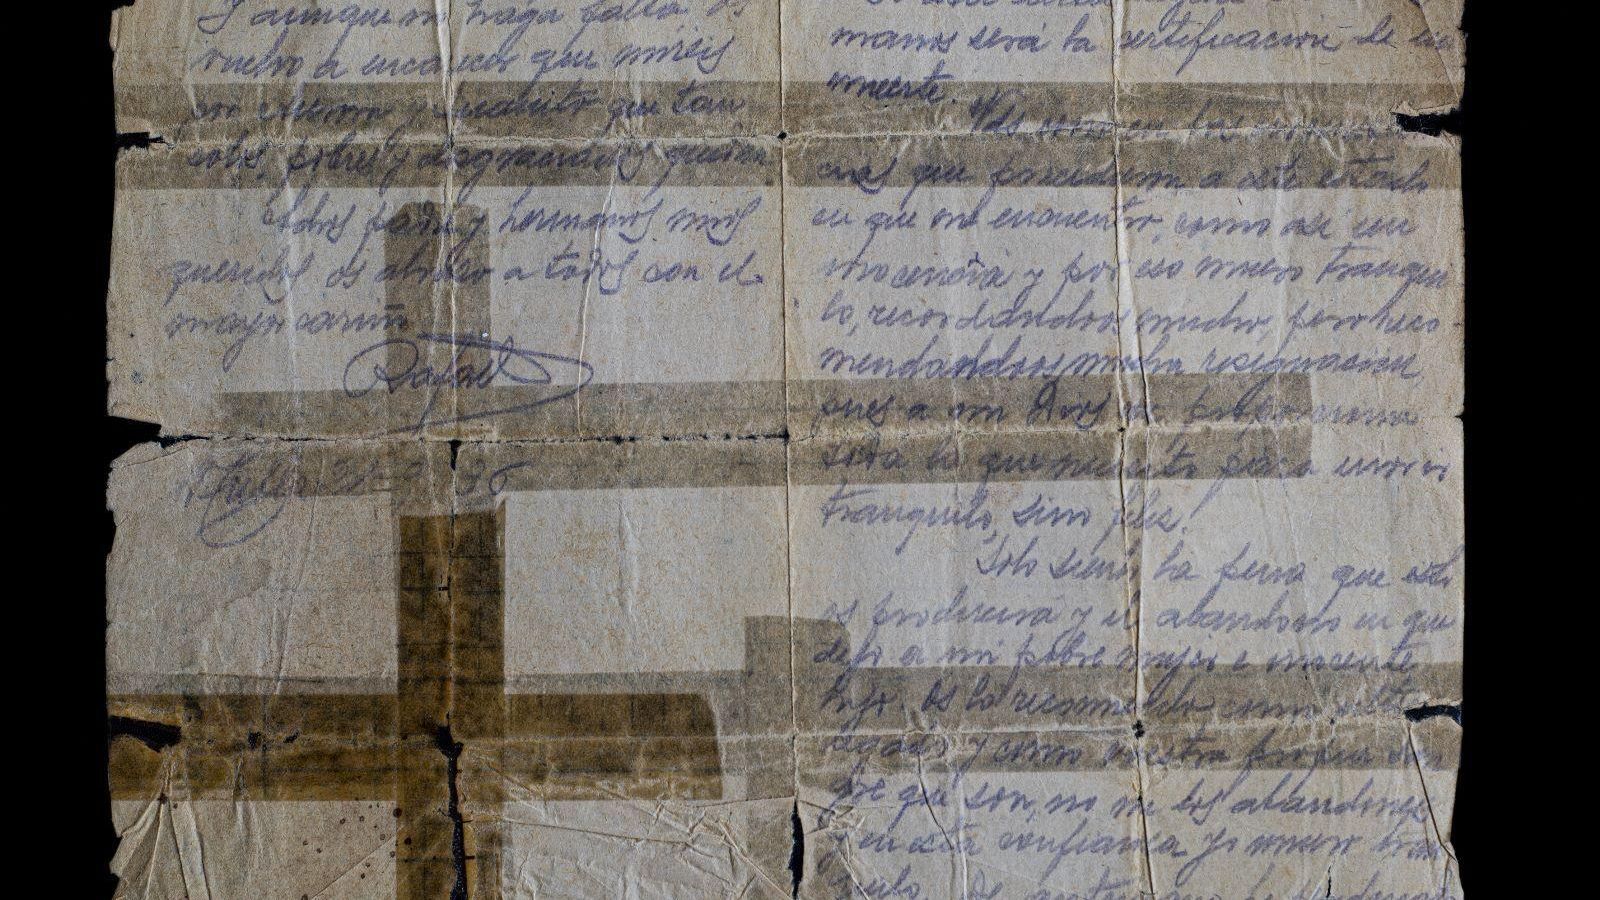 Y aunque no haga falta os
vuelvo a encarecer que miréis
por mi y que tan
solos, pobres y desgraciados quedan
Adios padre y hermanos mios
queridos os abrazo a todos con el
mayor cariño
Rafael
Julio 36
manos será la certificación de mi
muerte.
Vds
que a este estado
en que me encuentro, como asi mi
inocencia y por eso muero tranqui
lo, recordándoos mucho, pero reco-
mendandoos mucha resignacion,
pues a mi Dios me
sera la que necesito para morir
tranquilo, sino feliz!
Solo siento la pena que esto
os producirá y el abandono en que
dejo a mi pobre mujer e inocente
hijo. Os lo recomiendo como
y como vuestra propia san
gre que son, no me los abandoneis
y en esta confianza yo muero tran
quilo.